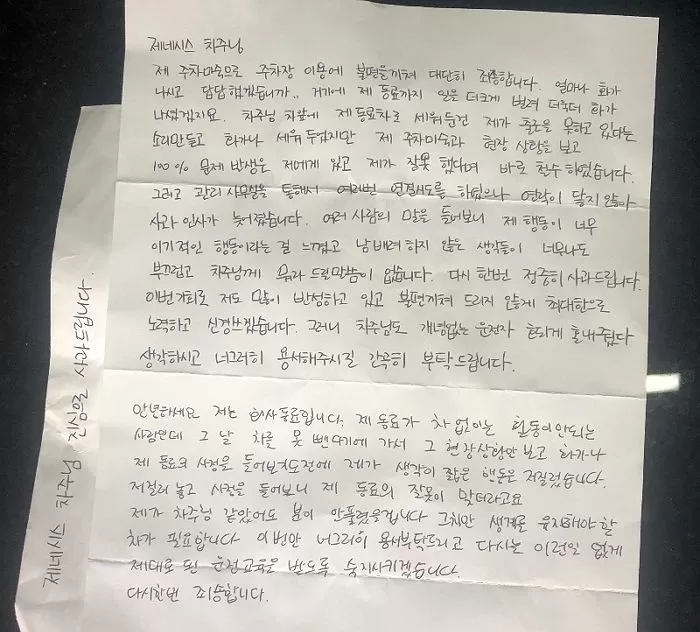 제네시스 차주님
제 주차미숙으로 주차장 이용에 불편을끼쳐 대단히 죄송합니다. 얼마나 화가
나시고 답답했겠습니까.. 거기에 제 동료까지 일을 더크게 벌려 더욱더 화가
나셨겠지요. 차주님 차앞에 제 동료차로 세워둔건 제가 출근을 못하고 있다는
소리만듣고 화가나 세워두었지만 제 주차미숙과 현장 상황을 보고
100% 문제 발생은 저에게 있고 제가 잘못 했다며 바로 철수 하였습니다.
그리고 관리 사무실을 통해서 여러번 연결시도를 하였으나 연락이 닿지 않아
사과 인사가 늦어졌습니다. 여러 사람의 말을 들어보니 제 행동이 너무
이기적인 행동이라는 걸 느꼈고 남배려 하지 않은 생각들이 너무나도
부끄럽고 차주님께 드릴말씀이 없습니다. 다시 한번 정중히 사과드립니다.
이번기회로 저도 많이 반성하고 있고 불편끼쳐 드리지 않게 최대한으로
노력하고 신경쓰겠습니다. 그러니 차주님도 개념없는 운전자 혼내줬다
생각하시고 너그러히 용서해주시길 간곡히 부탁드립니다.
안녕하세요 저는 회사동료입니다. 제 동료가 차 없이는 활동이안되는
사람인데 그 날 차를 못 뺀다기에 가서 그 현장상황만 보고 화가나
제 동료의 사정을 들어보기도전에 제가 생각이 짧은 행동은 저질렀습니다.
저질러 놓고 사건을 들어보니 제 동료의 잘못이 맞더라고요
제가 차주님 같았어도 분이 안풀렸을겁니다 그치만 생계를 유지해야 할
차가 필요합니다 이번만 너그러히 용서부탁드리고 다시는 이런일 없게
제대로 된 운전교육을 받도록 숙지시키겠습니다.
다시한번 죄송합니다.
제네시스 차주님 진심으로 사과드립니다.